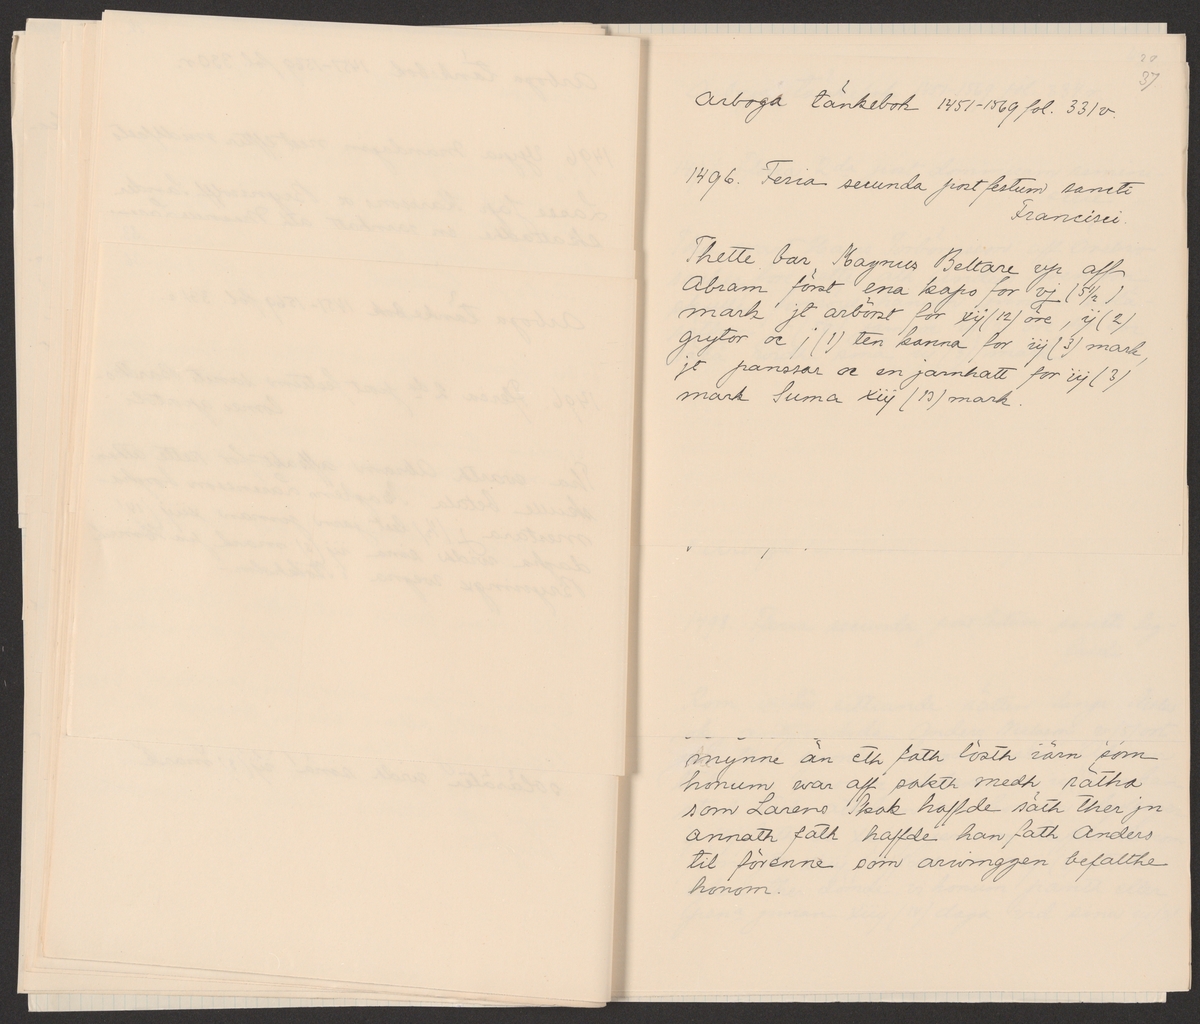 37
Arboga tänkebok 1451-1569 fol. 331 v.
1496. Feria secunda post festum sancti
Francisci.
Thette bar Magnus Beltare vp aff
Abram först ena kapo for vj (5½)
mark jt arbörst for xij (12) öre, ij (2)
grytor oc j (1) ten kanna for iij (3) mark,
jt panssar oc en jarnhatt for iij (3)
mark Suma xiij (13) mark.
mynne än eth fath lösth iärn som
honum war aff sakth medh rätha
som Larens Skok haffde säth ther jn
annath fath haffde han fath Anders
til förenne som arwinggen befalthe
honom.